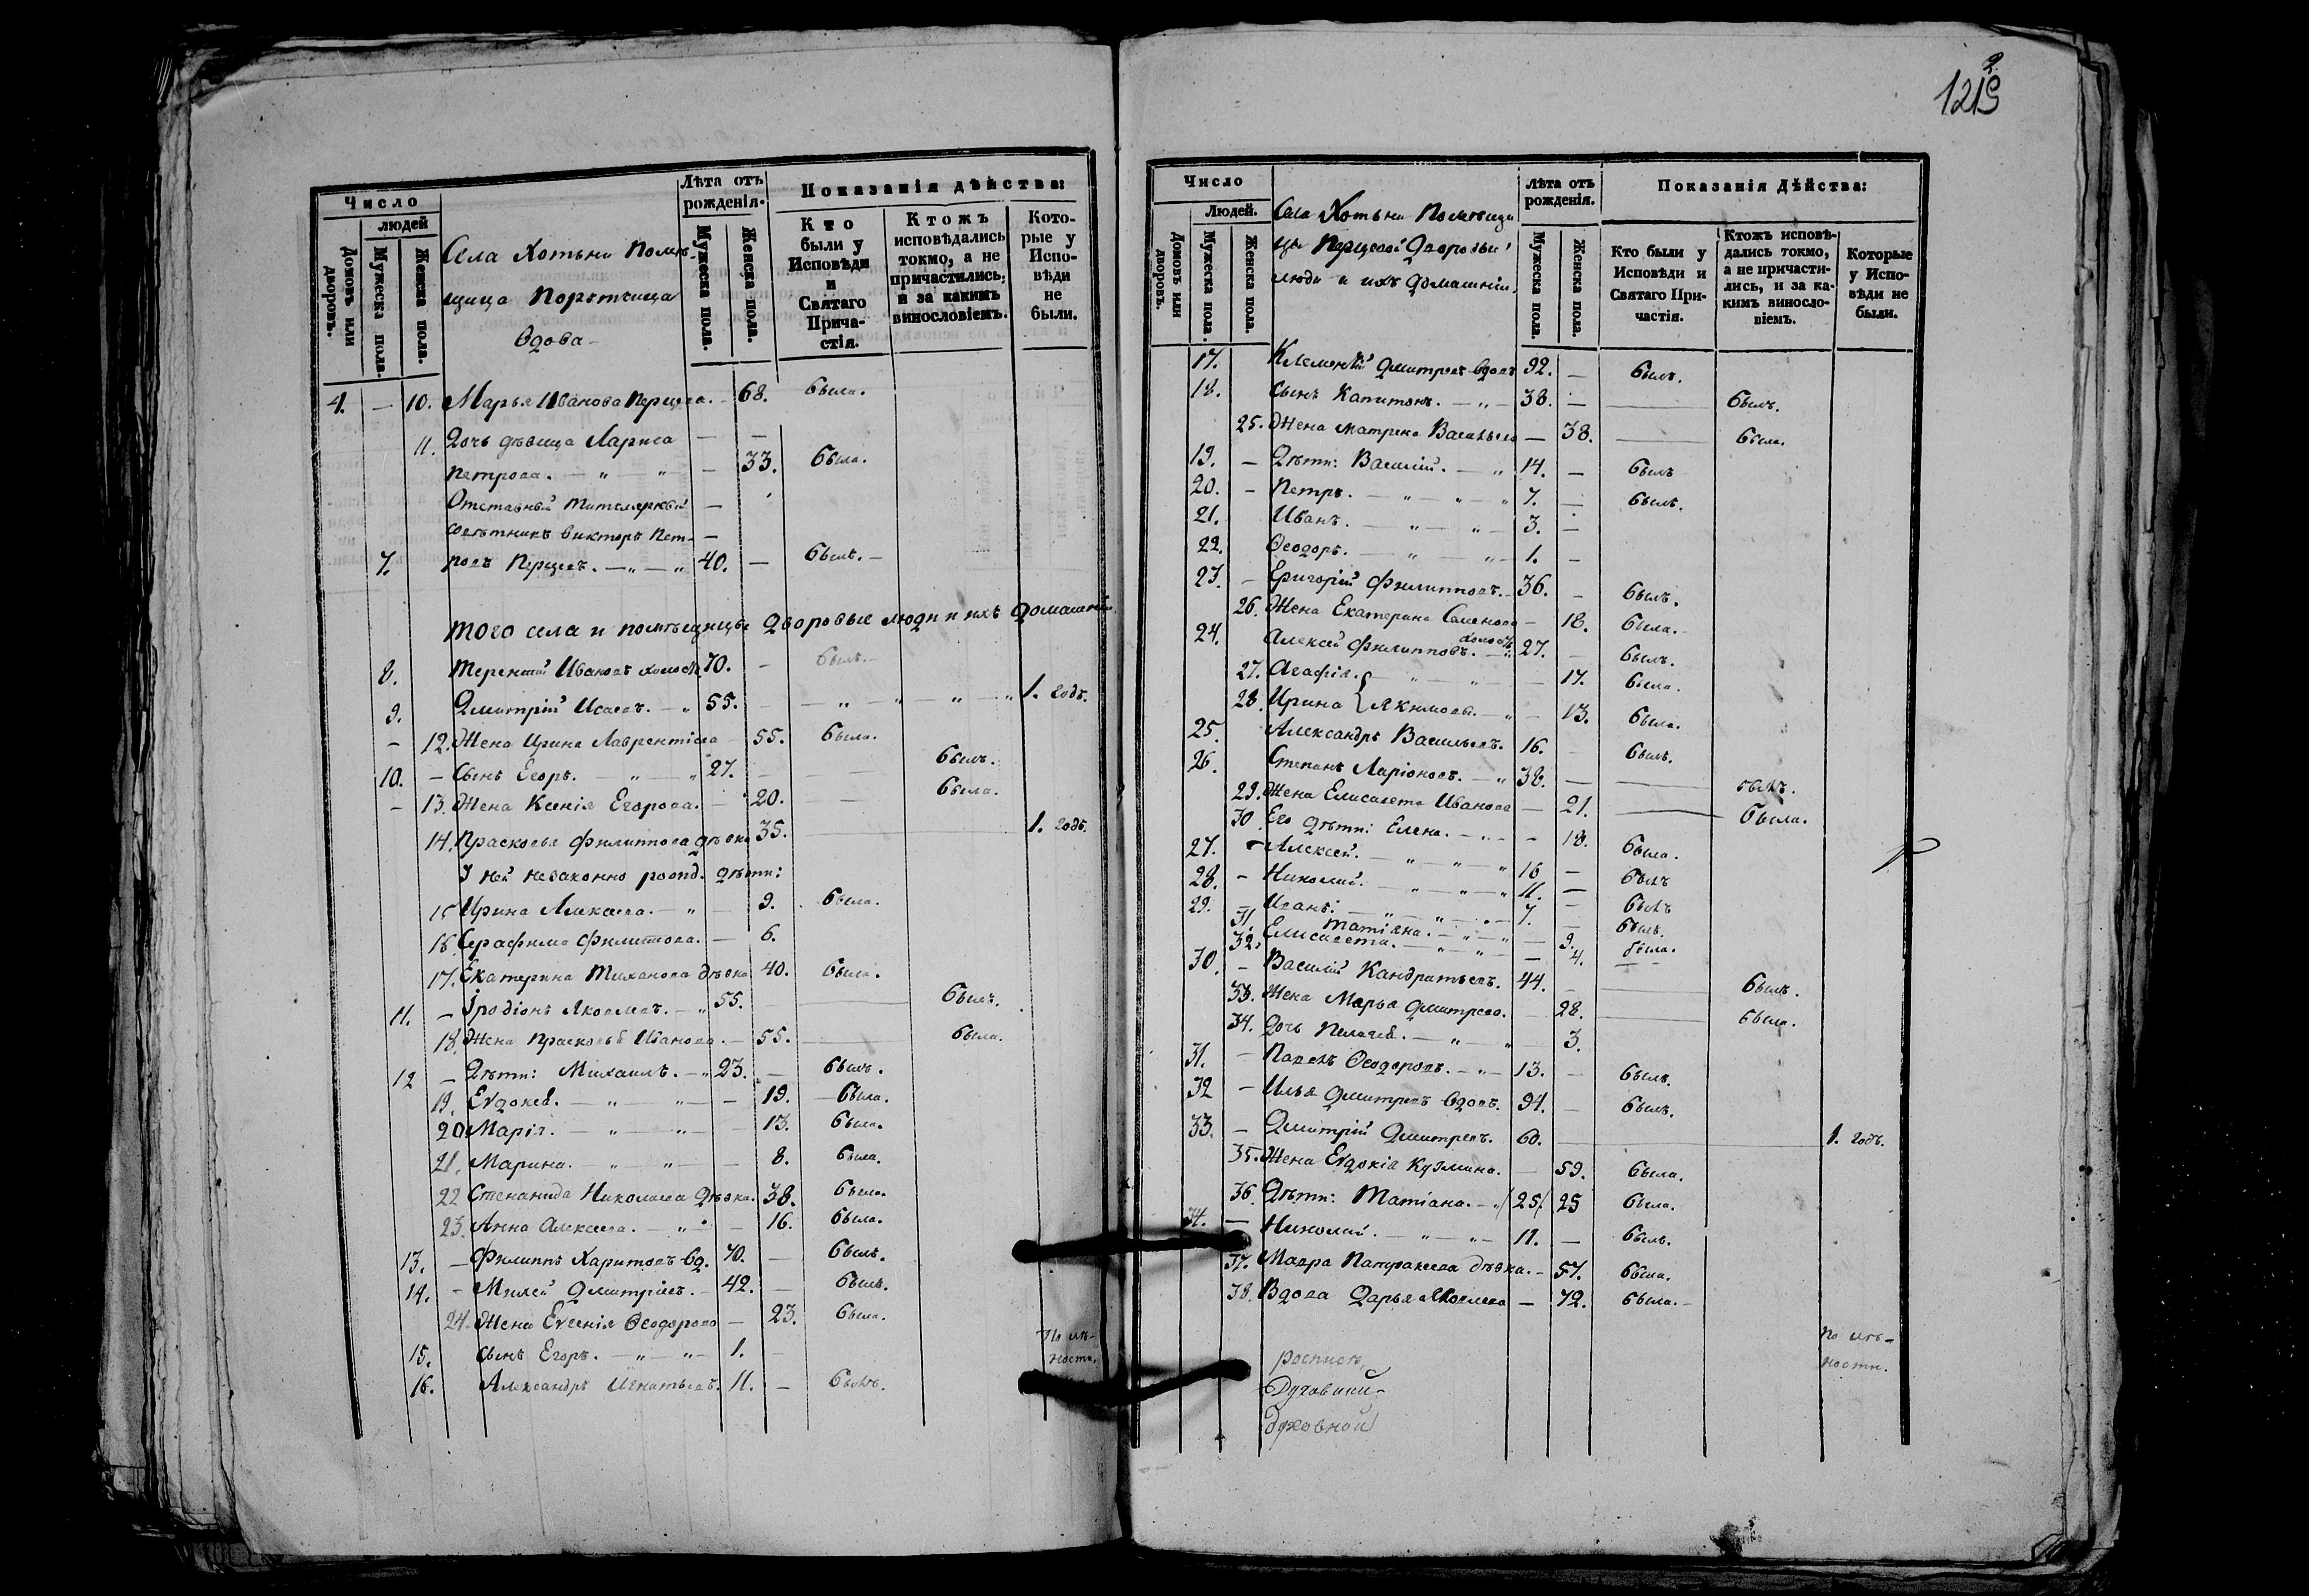 Число
людей
Домовъ или дворовъ.
Мужеска пола.
Женска пола.
Села Хотыни Помѣ-
щица Порутчица
Вдова
Лѣта отъ рожденія.
Мужеска пола.
Женска пола.
Показанія дѣйства:
Кто были у Исповѣди и Святаго Прича-стія.
Ктожъ исповѣдались токмо, а не причастились, и за какимъ винословіемъ.
Кото-рые у Испо-вѣди не были.
4. — 10. Марья Иванова Перцева. — 68. была.
11. Дочь дѣвица Лариса — —
Петрова. — „ — „ — 33. была.
Отставный титулярный —
совѣтникъ Викторъ Пет- —
7. ровъ Перцевъ. — „ — „ 40. — былъ. —
того села и помѣщицы дворовые люди и ихъ домашніи.
8. Терентій Ивановъ холостъ 70. — былъ. —
9. Дмитрій Исаевъ. — „ 55. — — „ — „ „ — „ 1. годъ.
— 12. Жена Ирина Лаврентіева 55. была.
10. — Сынъ Егоръ. — „ — „ 27. — — былъ.
— 13. Жена Ксенія Егорова. — 20. — была.
14. Прасковья Филиппова дѣвка 35. — 1. годъ.
У ней незаконно рожд. дѣти:
15 Ирина Алексеева. — „ — 9. была.
16. Серафима Филиппова. — 6.
17. Екатерина Тиханова дѣвка 40. была.
11. — Іродіонъ Яковлевъ. — „ 55. — былъ.
18. Жена Прасковья Иванова. — 55. — была.
12 — Дѣти: Михаилъ. — „ 23. — былъ.
19. Евдокея. — „ — „ — 19. — была.
20. Марія. — „ — „ — 13. была.
21. Марина. — „ — „ — 8. была.
22 Степанида Николаева дѣвка. 38. была.
23. Анна Алексеева. — „ — 16. была.
13. — Филиппъ Харитовъ вд. 70. — былъ.
14. — Милей Дмитріевъ. — 42. — былъ.
24. Жена Евгенія Ѳеодорова — 23. была.
15. Сынъ Егоръ. — „ — „ — 1. — По мѣ-
16. Александръ Игнатьевъ. 11. — былъ. ности.
1219
2
Число
Людей.
Домовъ или дворовъ.
Мужеска пола.
Женска пола.
Села Хотыни Помѣщи
цы Перцевой Дворовыи
люди и ихъ домашніи.
Лѣта отъ рожденія.
Мужеска пола.
Женска пола.
Показанія Дѣйства:
Кто были у Исповѣди и Святаго При-частія.
Ктожъ исповѣ-дались токмо, а не причасти-лись, и за ка-кимъ винословіемъ.
Которые у Испо-вѣди не были.
17. Клементій Дмитревъ вдовъ 92. — былъ.
18. Сынъ Капитонъ. — „ — 38. — — былъ.
25. Жена Матрена Васильева — 38. — была.
19. — Дѣти: Василій. — „ 14. — былъ
20. — Петръ. — „ — „ — „ 7. — былъ.
21. Иванъ. — „ — „ — 3. —
22. Ѳеодоръ. — „ — „ — 1. —
23. — Григорій Филипповъ. — 36. — былъ.
26. Жена Екатерина Семенова — 18. была. —
24. Алексей Филипповъ. холостъ 27. — былъ.
27. Агафія. — „ — „ — 17. была.
28. Ирина } Якимовы. — „ — 13. была.
25. Александръ Васильевъ. 16. — былъ.
26. Степанъ Ларіоновъ. — „ 38. — — былъ.
29. Жена Елисавета Иванова — 21. — была.
30 Его дѣти: Елена. — „ — 18. была.
27. — Алексей. — „ — „ — „ 16 — былъ
28. — Николай. — „ — „ — „ 11. — былъ
29. — Иванъ: — „ — „ — 7. — былъ.
31. Татіяна. — „ — „ — 9. была.
32. Елисавета. — „ — „ — 4.
30. — Василій Кандратьевъ. 44. — — былъ.
33. Жена Марья Дмитрева. — 28. — была.
34. Дочь Пелагея. — „ — „ — 3.
31. — Павелъ Ѳеодоровъ. — „ — 13. — былъ.
32 — Илья Дмитревъ вдовъ. 94. — былъ.
33. — Дмитрій Дмитревъ. 60. — 1. годъ.
35. Жена Евдокія Кузмина. — 59. была.
36. Дѣти: Татіана. — „ (25) 25 была.
34. — Николай. — „ — „ — 11. — былъ.
37. Мавра дѣвка. — 57. была.
38. Вдова Дарья Яковлева — 72. была. —
по мѣ-
роспись, ности.
Духовний
духовной